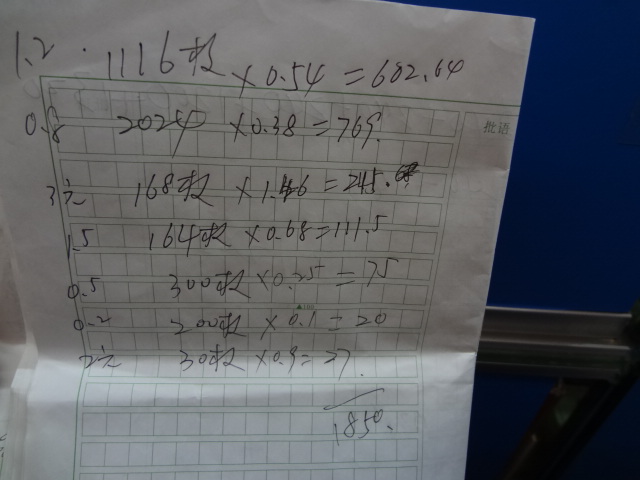 1.2 . 1116枚 ×0.54 = 602.64
批语
0.8 2024 ×0.38=769.
3元 168枚 ×1.46=245.
1.5 164枚 ×0.68=111.5
0.5 300枚 ×0.25 = 75
▲100
0.2 200枚 ×0.1 = 20
2元 30枚 ×0.9= 27.
1850.